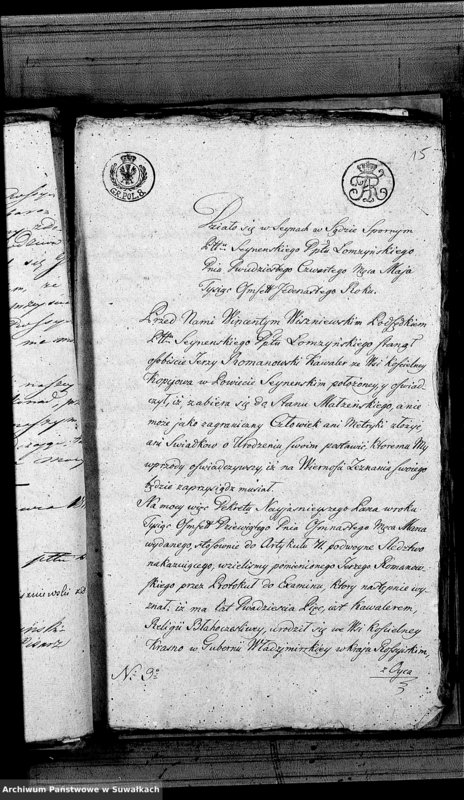 15
GR. POL. 8.
Działo się w Seynach w Sądzie Spornym
Pttu Seynenskiego Dptu Łomżyńskiego
Dnia Dwudziestego Czwartego Mca Maja
Tysiąc Osmset Jedenastego Roku.
Przed Nami Wincentym Wiszniewskim Podsędkiem
Pttu Seynenskiego Dptu Łomzyńskiego stanął
osobiście Jerzy Romanowski Kawaler ze Wsi Kościelney
w Powiecie Seynenskim położoney y oswiad-
czył, iż zabiera się do Stanu Małżeńskiego, a nie
może jako zagraniczny Człowiek ani Metryki złożyć,
ani Swiadkow o Urodzeniu swoim postawić, ktoremu My
wprzody oswiadczywszy, iż na Wiernosć Zeznania swoiego
będzie zaprzysiądz musiał.
Na mocy więc Dekretu Nayjasnieyszego Pana w roku
Tysiąc Osmset Dziewiątego Dnia Osmnastego Mca Marca
wydanego, stosownie do Artykułu 71. podwoyne Sledztwo
nakazuiącego, wzielismy pomienionego Jerzego Romanow-
skiego przez Protokuł do Examinu, ktory następnie wy-
znał, iż ma Lat Dwadziescia Pięć, iest Kawalerem,
Religii Błahoczesliwy, urodził się we Wsi Kościelney
Krasno w Gubernii Władymirskiey w kraju Rossyiskim,
z Oyca
Archiwum Państwowe w Suwałkach